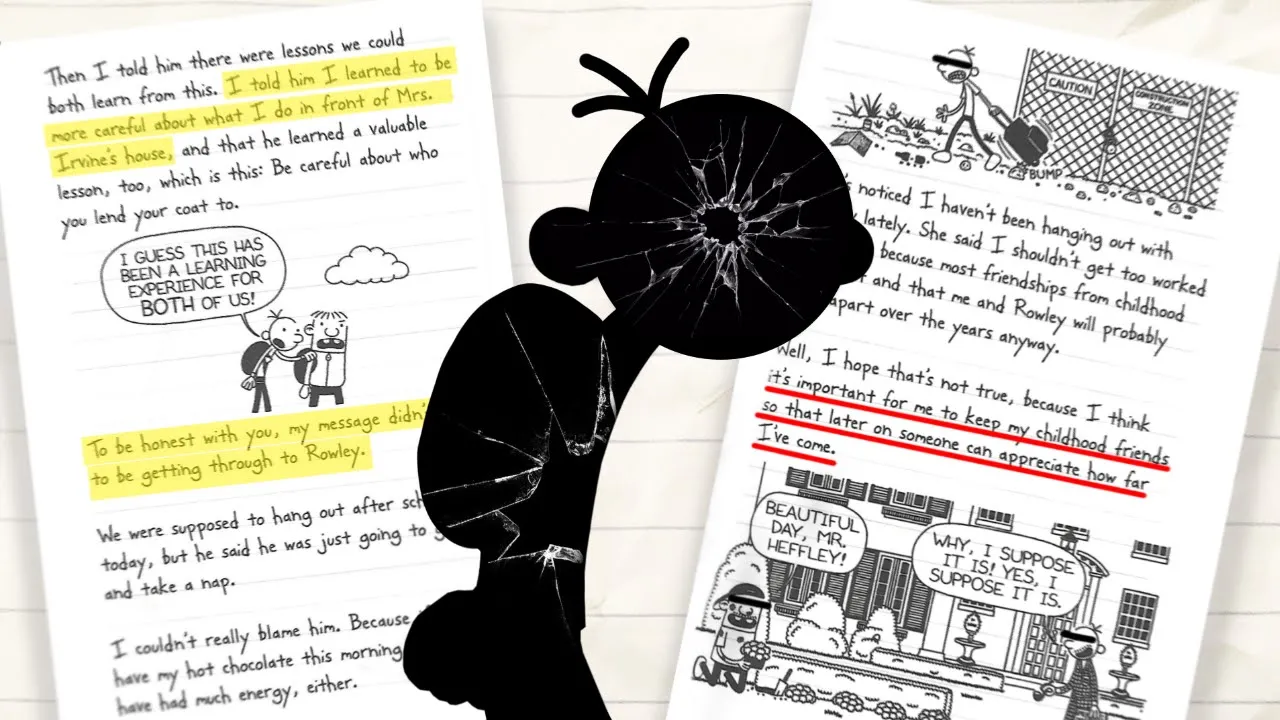 Then I told him there were lessons we could
both learn from this. I told him I learned to be
more careful about what I do in front of Mrs.
Irvine's house, and that he learned a valuable
lesson, too, which is this: Be careful about who
you lend your coat to.
I GUESS THIS HAS
BEEN A LEARNING
EXPERIENCE FOR
BOTH OF US!
To be honest with you, my message didn'
to be getting through to Rowley.
We were supposed to hang out after sch
today, but he said he was just going to g
and take a nap.
I couldn't really blame him. Because
have my hot chocolate this morning
have had much energy, either.
CAUTION
CONSTRUCTION
ZONE
BUMP
noticed I haven't been hanging out with
lately. She said I shouldn't get too worked
because most friendships from childhood
and that me and Rowley will probably
apart over the years anyway.
Well, I hope that's not true, because I think
it's important for me to keep my childhood friends
so that later on someone can appreciate how far
I've come.
BEAUTIFUL
DAY, MR.
HEFFLEY!
WHY, I SUPPOSE
IT IS! YES, I
SUPPOSE IT IS.